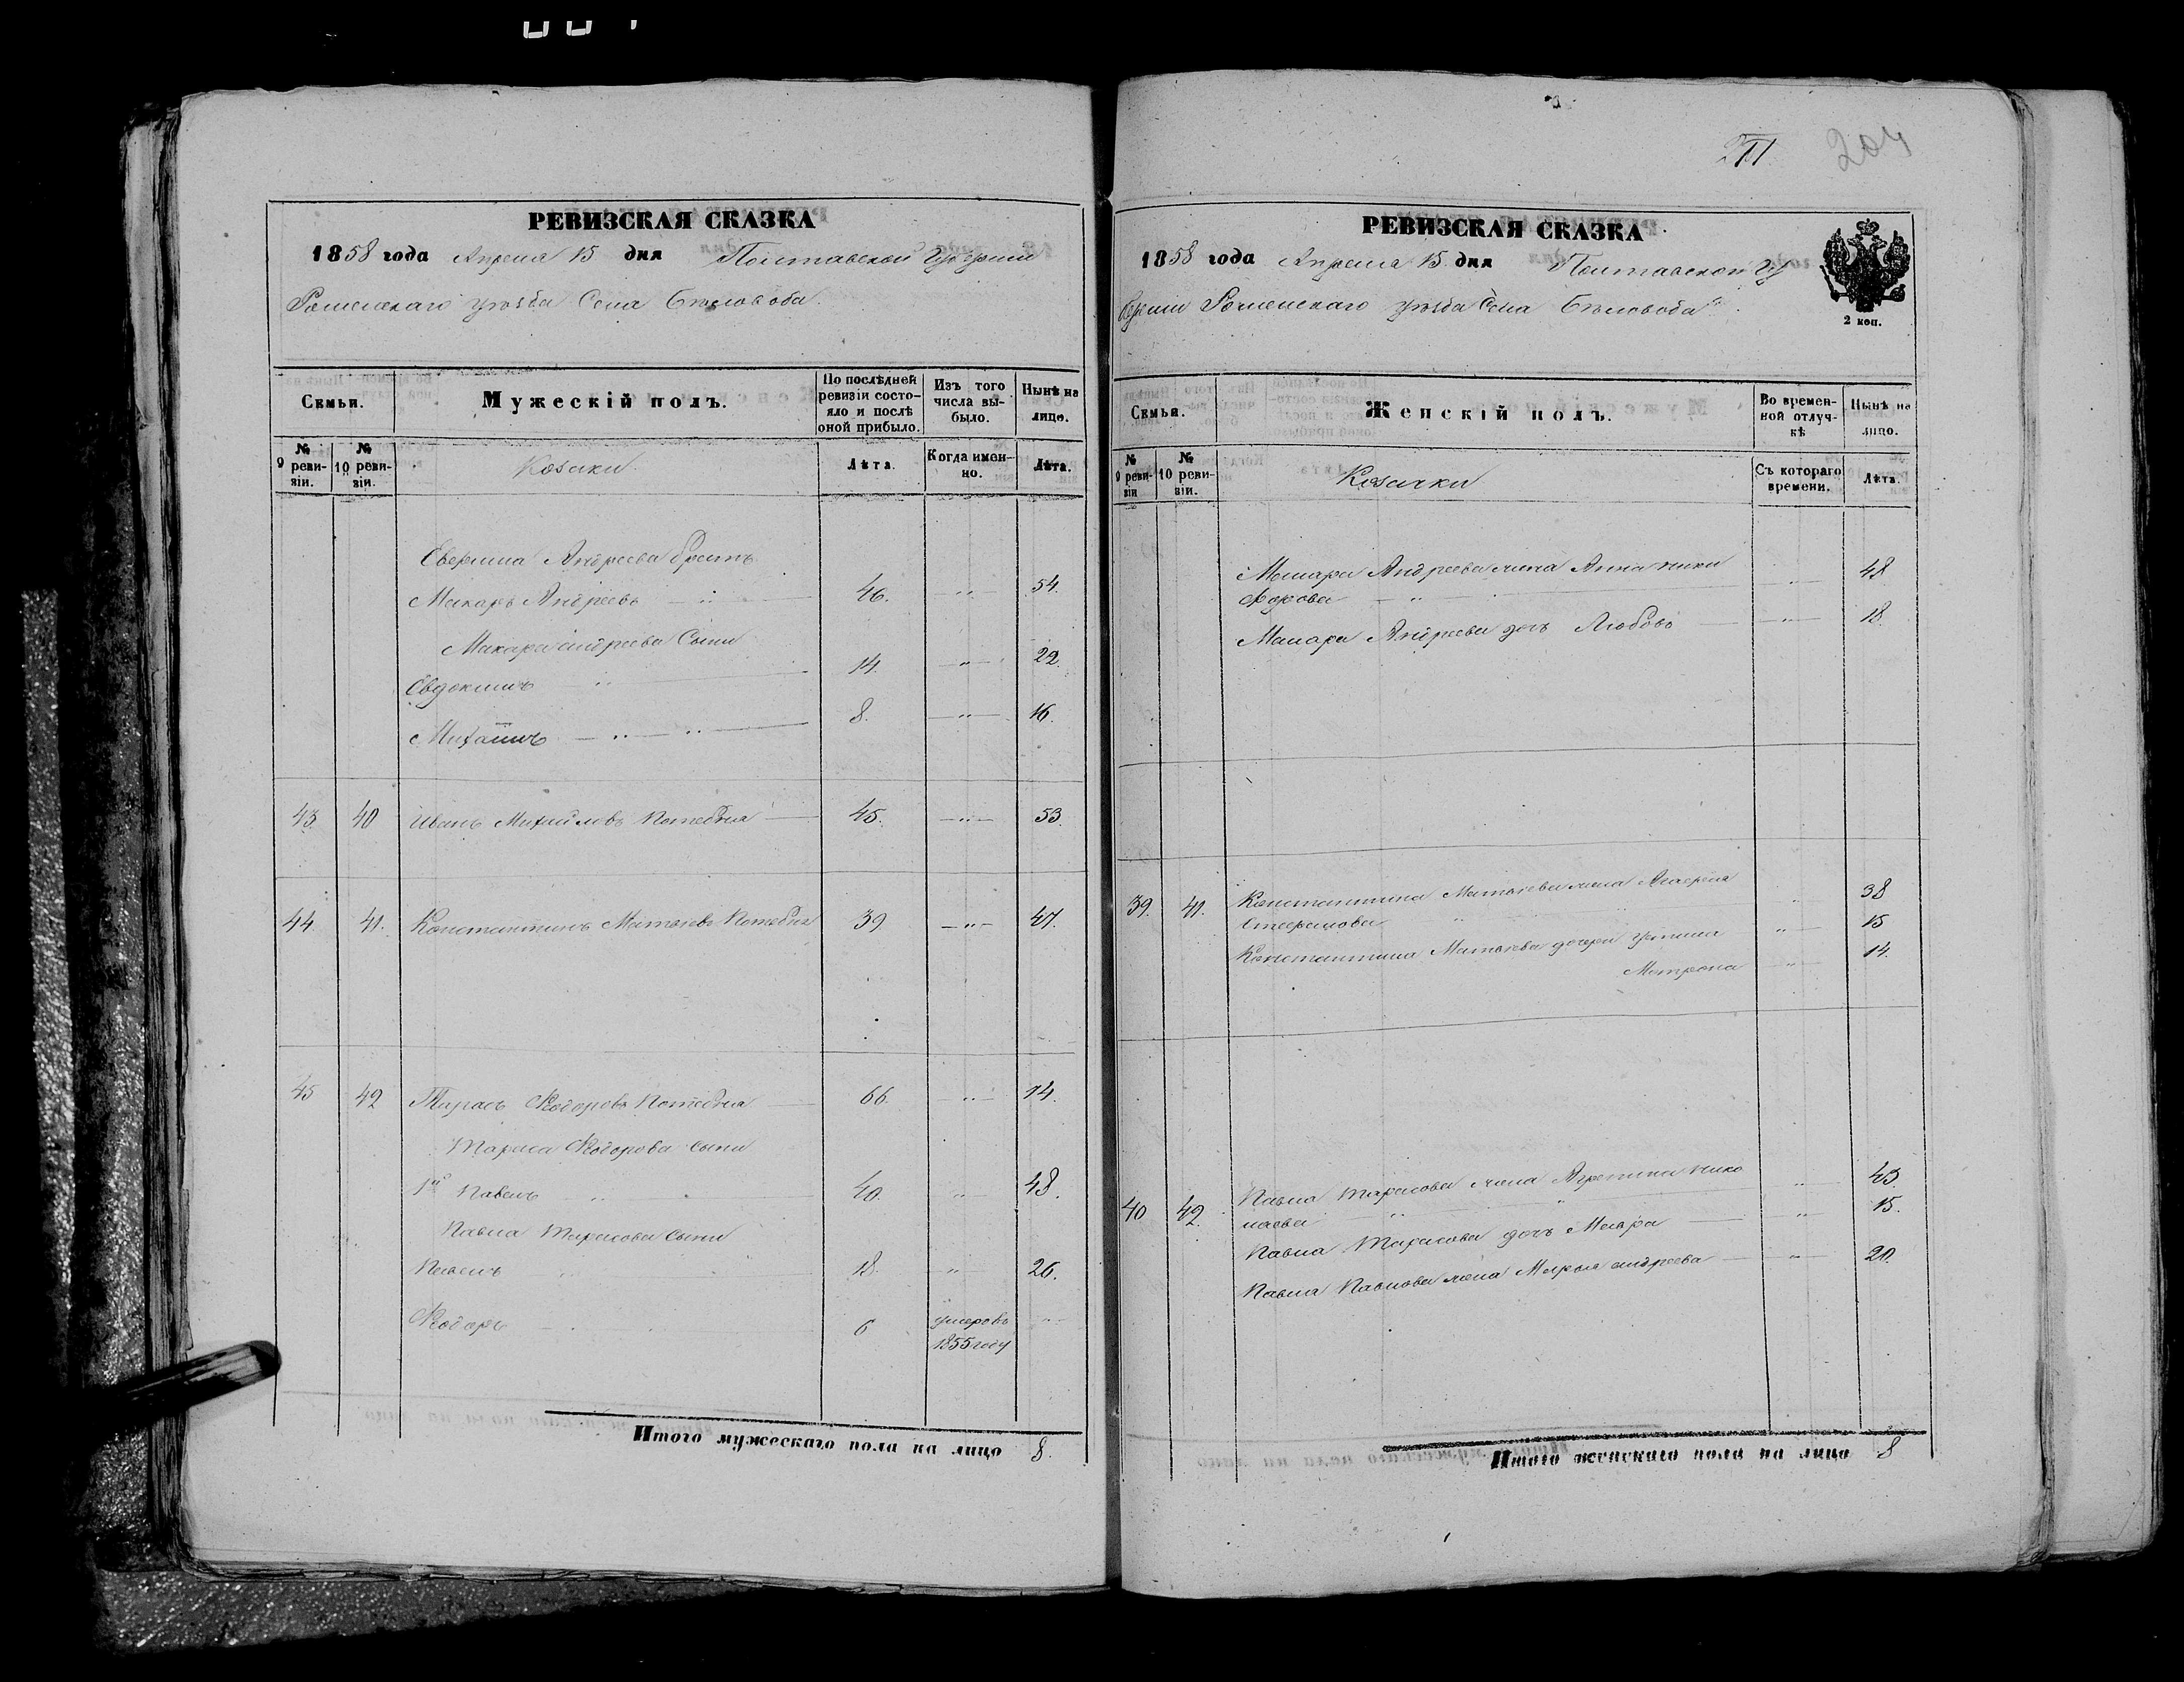 211. 204
РЕВИЗСКАЯ СКАЗКА
1858 года Апреля 15 дня Полтавской Губернии
Роменскаго уѣзда Села Бѣловода.
Семьи.
Мужескій полъ.
По послѣдней ревизіи состояло и послѣ оной прибыло.
Изъ того числа выбыло.
Нынѣ на лицо.
№ 9 ревизіи.
№ 10 ревизіи.
Козаки
Лѣта.
Когда именно.
Лѣта.
Андреева братъ
Макаръ Андреевъ — 46. — " — 54.
Макара Андреева Сыни
Евдокимъ — 14. — " — 22.
Михаилъ — " — " — 8. — " — 16.
43. 40 Иванъ Михайловъ Потебня — 45. — " — 53.
44 41. Константинъ Матвѣевъ Потебня 39 — " — 47.
45 42 Тарасъ Ѳедоровъ Потебня — 66. — " — 74.
Тараса Ѳедорова сыни
1й Павелъ " 40. " 48.
Павла Тарасова Сыни
Павелъ 18. " 26.
Ѳедоръ — 6 умеръ въ 1855 году "
Итого мужескаго пола на лицо 8.
РЕВИЗСКАЯ СКАЗКА
1858 года Апреля 15 дня Полтавской Гу
берніи Роменскаго уѣзда Села Бѣловода
2 коп.
Семьи.
Женскій полъ.
Во временной отлучкѣ
Нынѣ на лицо.
№ 9 ревизіи
№ 10 ревизіи.
Козачки
Съ котораго времени.
Лѣта.
Макара Андреева жена Анна Ники
форова — " — 48
Макара Андреева дочь Любовь — " — 18.
39. 41. Константина Матвѣева жена Агафия
Стефанова " 38
Константина Матвѣева дочери Устина " 15
Мотрона — " — 14.
40 42. Павла Тарасова жена Нико
лаева — " — 43.
Павла Тарасова дочь Мавра — " — 15.
Павла Павлова жена Марья Андреева — " — 20.
Итого женскаго пола на лицо 8